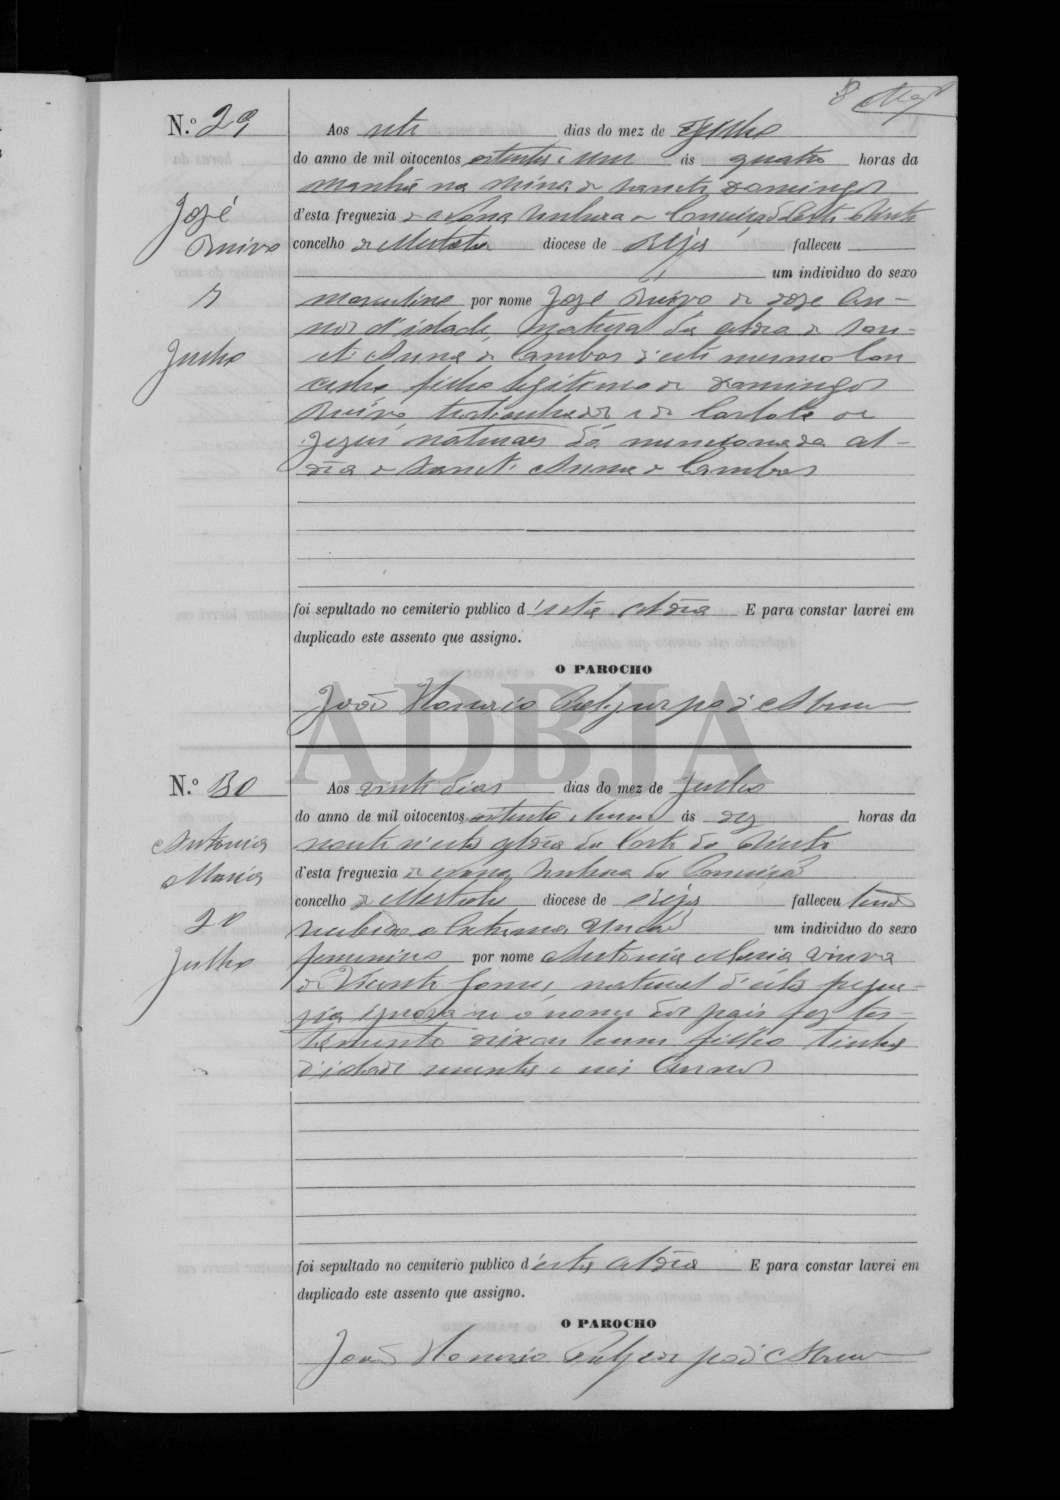 8
N.º 29
Aos sete dias do mez de Julho
do anno de mil oitocentos oitenta e um ás quatro horas da
manhã na Mina de Sancto Domingos
José
d'esta freguezia de Nossa Senhora da Conceição da Corte do Pinto
Ruivo
concelho de Mertola diocese de Beja falleceu
um individuo do sexo
7
masculino por nome José Ruivo de doze an-
nos d'idade, natural da aldea de San-
Julho
ct'Anna de Cambas d'este mesmo Con
celho filho legitimo de Domingos
Ruivo trabalhador e de Carlota de
Jezus naturaes da mencionada al-
dêa de Sanct'Anna de Cambas
foi sepultado no cemiterio publico d'esta aldêa E para constar lavrei em
duplicado este assento que assigno.
O PAROCHO
João Honorio d'Abreu
ADBJA
N.º 30
Aos vinte dias dias do mez de Julho
do anno de mil oitocentos oitenta e hum ás dez horas da
Antonia
noute n'esta aldêa da Corte do Pinto
Maria
d'esta freguezia de Nossa Senhora da Conceição
concelho de Mertola diocese de Beja falleceu tendo
20
recebido a Extrema Unção um individuo do sexo
Julho
femenino por nome Antonia Maria viuva
de Vicente Gomes, natural d'esta fregue-
zia ignora-se o nome dos pais fez tes-
tamento deixou hum filho tinha
d'idade setenta e seis annos
foi sepultado no cemiterio publico d'esta aldêa E para constar lavrei em
duplicado este assento que assigno.
O PAROCHO
João Honorio d'Abreu